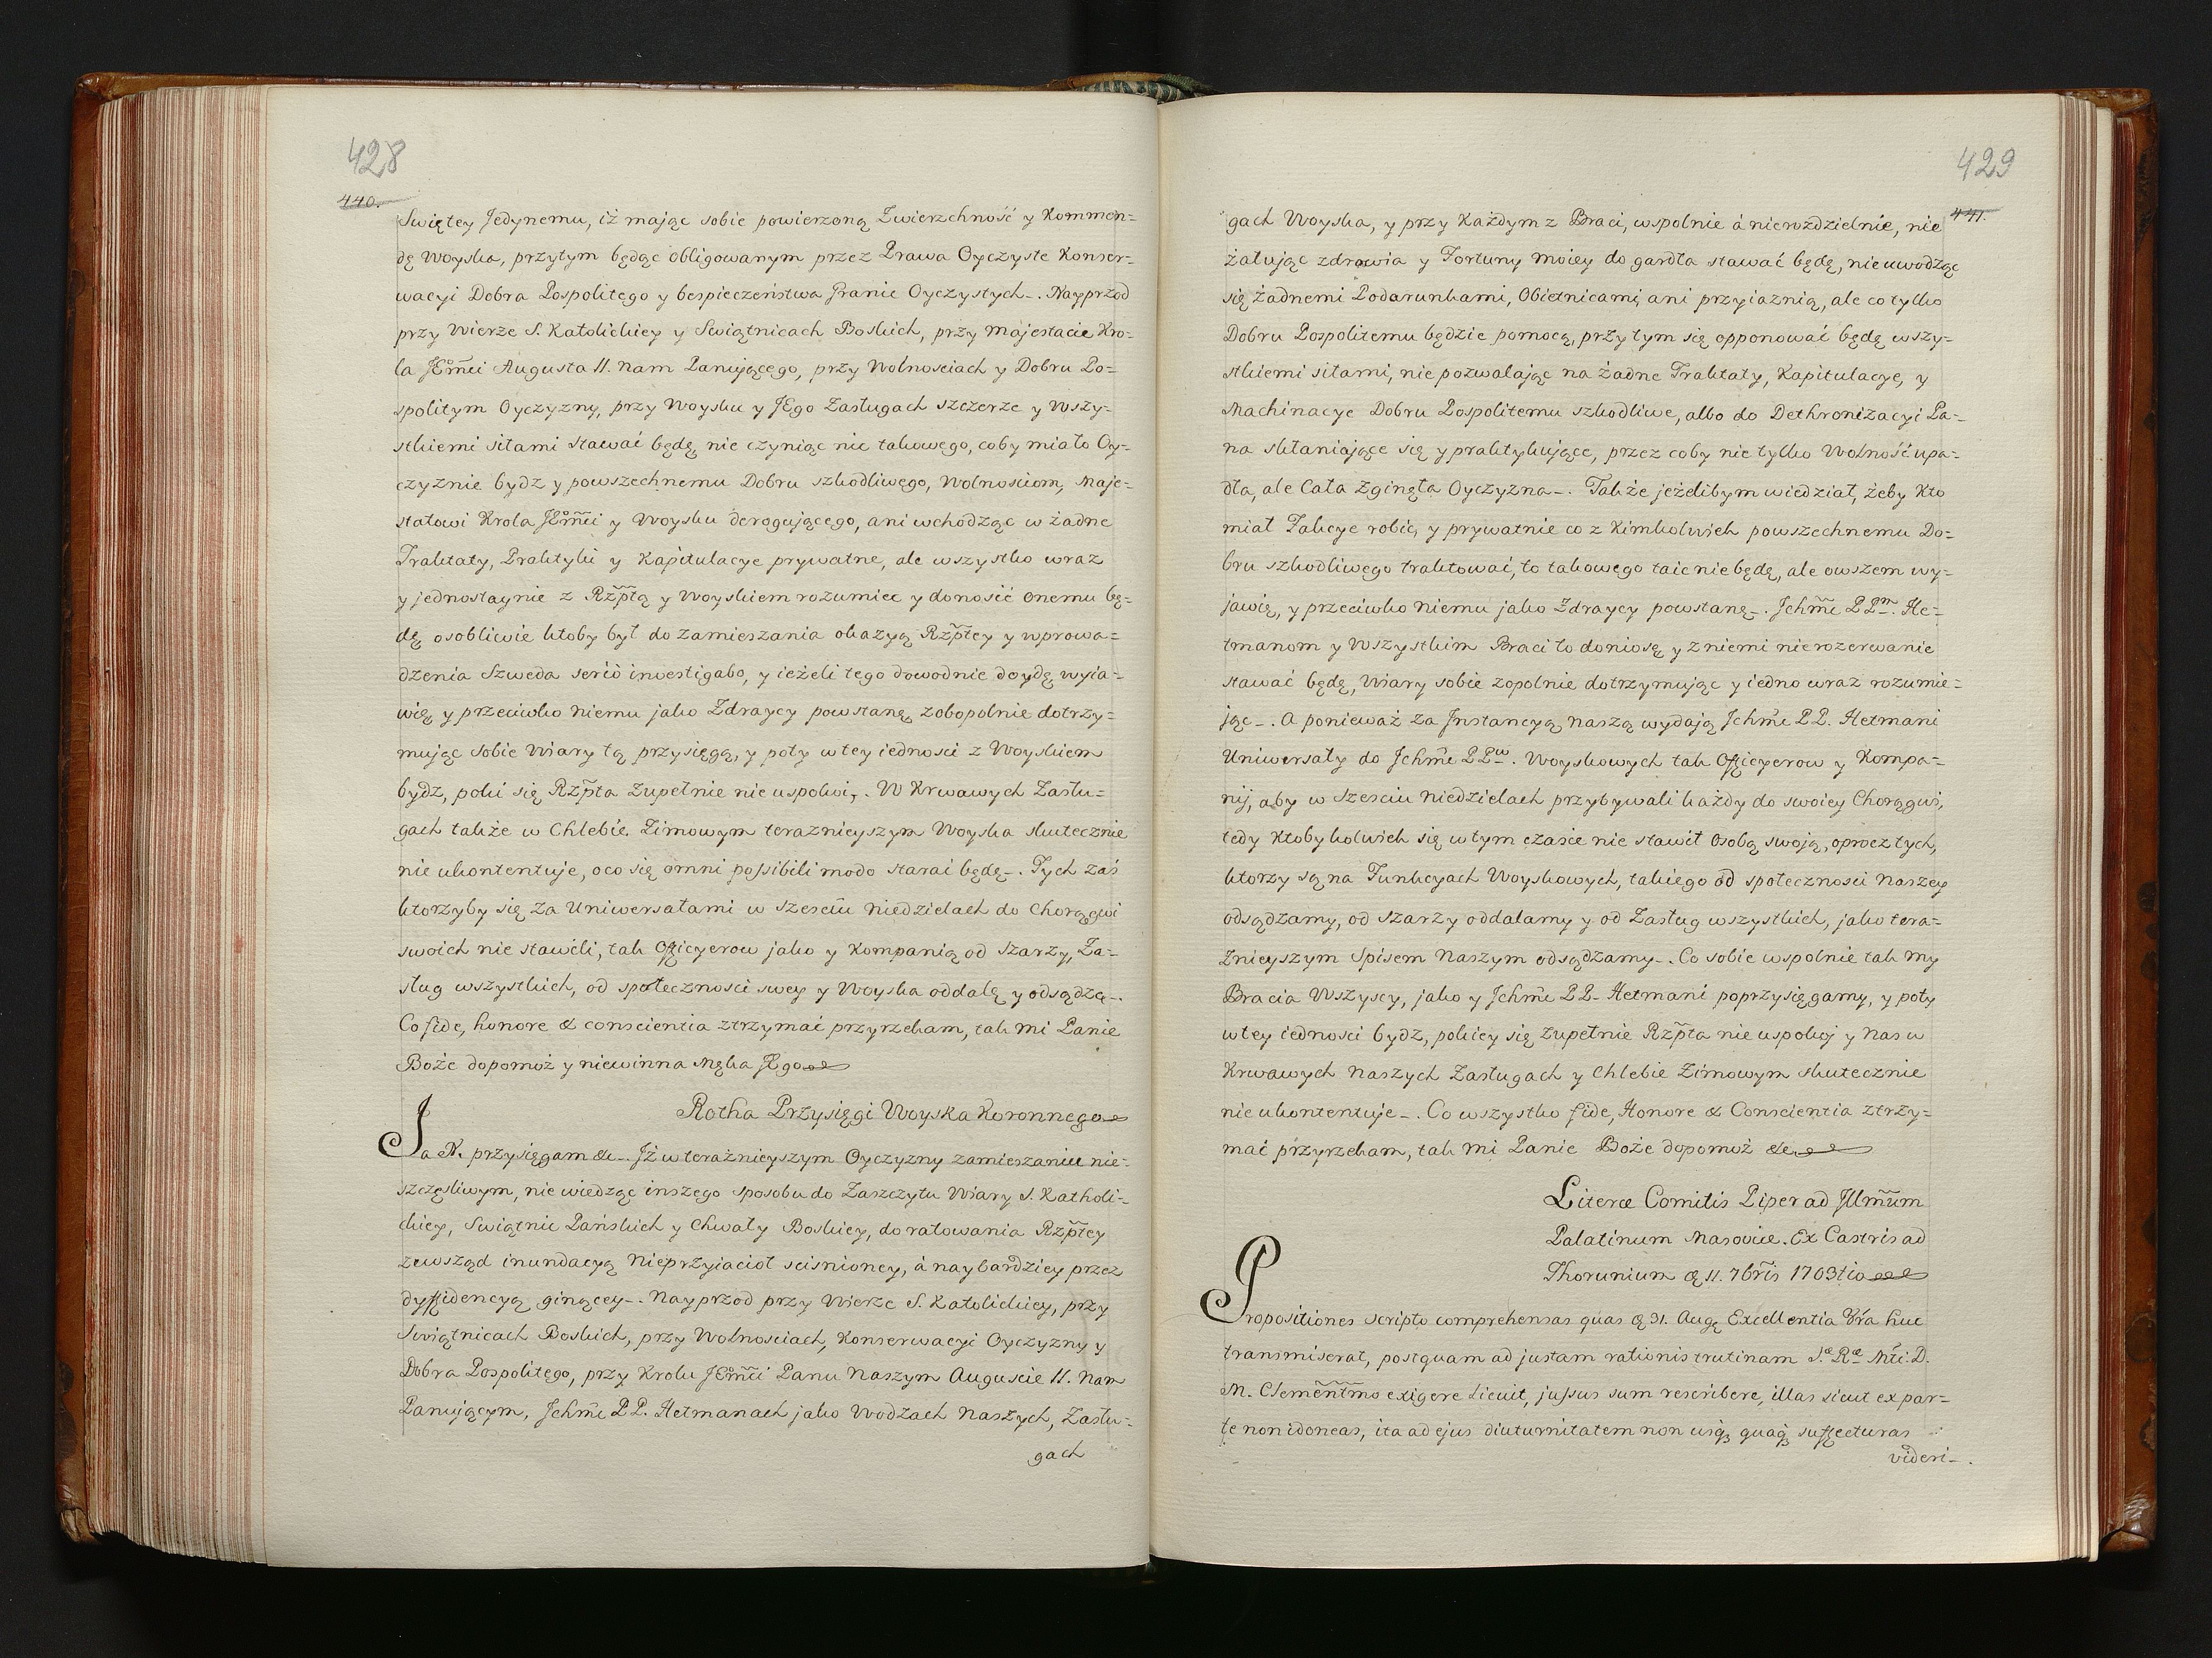 428
440.
Swiętey Jedynemu, iż mając sobie powierzoną Zwierzchność y Kommen=
dę Woyska, przytym będąc obligowanym przez Prawa Oyczyste Konser=
wacyi Dobra Pospolitego y bespieczeństwa Granic Oyczystych_. Nayprzod
przy Wierze S. Katolickiey y Swiątnicach Boskich, przy Majestacie Kro=
la JEmci Augusta II. nam Panującego, przy Wolnosciach y Dobru Po=
spolitym Oyczyzny, przy Woysku y JEgo Zasługach szczerze y wszy=
stkiemi siłami stawać będę, nie czyniąc nic takowego, coby miało Oy=
czyznie bydz y powszechnemu Dobru szkodliwego, Wolnosciom, Maje=
statowi Krola JEmci y Woysku derogującego, ani wchodząc w żadne
Traktaty, Praktyki y Kapitulacye prywatne, ale wszystko wraz
y jednostaynie z Rzptą y Woyskiem rozumiec y donosić onemu bę=
dę osobliwie ktoby był do zamieszania okazyą Rzptey y wprowa=
dzenia Szweda seriò investigabo, y ieżeli tego dowodnie doydę wyia=
wię y przeciwko niemu jako Zdraycy powstanę, zobopolnie dotrzy=
mując sobie Wiary tą przysięgą, y poty w tey iednosci z Woyskiem
bydz, poki się Rzpta zupełnie nie uspokoi,. W Krwawych Zasłu=
gach także w Chlebie Zimowym teraznieyszym Woyska skutecznie
nie ukontentuje, oco się omni possibili modo starać będę_. Tych zaś
ktorzyby się za Uniwersałami w szesciu niedzielach do Chorągwi
swoich nie stawili, tak Officyerow jako y Kompanią od szarzy, Za=
sług wszystkich, od społecznosci swey y Woyska oddalę y odsądzę_.
Co fide, honore & conscientia ztrzymać przyrzekam, tak mi Panie
Boże dopomoż y niewinna Męka JEgo
Rotha Przysięgi Woyska Koronnego
Ja N. przysięgam &c_. Jż w teraźnieyszym Oyczyzny zamieszaniu nie=
szczęsliwym, nie wiedząc inszego sposobu do Zaszczytu Wiary S. Katholi=
ckiey, Swiątnic Pańskich y Chwały Boskiey, do ratowania Rzptey
zewsząd inundacyą Nieprzyiacioł scisnioney, á naybardziey przez
dyffidencyą ginącey_. Nayprzod przy Wierze S. Katolickiey, przy
Swiątnicach Boskich, przy Wolnosciach, Konserwacyi Oyczyzny y
Dobra Pospolitego, przy Krolu JEmci Panu Naszym Auguscie II. Nam
Panującym, Jchmc PP. Hetmanach jako Wodzach Naszych, Zasłu=
gach
429
441.
gach Woyska, y przy każdym z Braci, wspolnie á nierozdzielnie, nie
żałując zdrowia y Fortuny moiey do gardła stawać będę, nie uwodząc
się żadnemi Podarunkami, Obietnicami, ani przyiaznią, ale co tylko
Dobru Pospolitemu będzie pomocą, przytym się opponować będę wszy=
stkiemi siłami, nie pozwalając na żadne Traktaty, Kapitulacye, y
Machinacye Dobru Pospolitemu szkodliwe, albo do Dethronizacyi Pa=
na skłaniające się y praktykujące, przez coby nie tylko Wolność upa=
dła, ale Cała zginęła Oyczyzna_. Także jeżelibym wiedział, żeby kto
miał Fakcye robić, y prywatnie co z kimkolwiek powszechnemu Do=
bru szkodliwego traktować, to takowego taic nie będę, ale owszem wy=
jawię, y przeciwko niemu jako Zdraycy powstanę_. Jchmc PPm. He=
tmanom y Wszystkim Braci to doniosę y z niemi nierozerwanie
stawać będę, Wiary sobie zopolnie dotrzymując y iedno wraz rozumie=
jąc_. A ponieważ za Jnstancyą naszą wydają Jchmc PP. Hetmani
Uniwersały do Jchmc PPw. Woyskowych tak Officyerow y Kompa=
nij, aby w szesciu niedzielach przybywali każdy do swoiey Chorągwi,
tedy ktobykolwiek się w tym czasie nie stawił osobą swoją, oprocz tych,
ktorzy są na Funkcyach Woyskowych, takiego od społecznosci naszey
odsądzamy, od szarzy oddalamy y od Zasług wszystkich, jako tera=
znieyszym Spisem Naszym odsądzamy_. Co sobie wspolnie tak my
Bracia Wszyscy, jako y Jchmc PP. Hetmani poprzysięgamy, y poty
w tey iednosci bydz, pokiey się zupełnie Rzpta nie uspokoj y Nas w
Krwawych Naszych Zasługach y Chlebie Zimowym skutecznie
nie ukontentuje_. Co wszystko fide, Honore & Conscientia ztrzy=
mać przyrzekam, tak mi Panie Boże dopomoż &c
Literæ Comitis Piper ad Jllmum
Palatinum Masoviæ. Ex Castris ad
Thorunium d. 11. 7bris 1703tio
Propositiones scripto comprehensas quas d. 31. Aug. Excellentia Vra huc
transmiserat, postquam ad justam rationis trutinam S.æ R.æ Mti. D.
M. Clementmo exigere licuit, jussus sum rescribere, illas sicut ex par=
te non idoneas, ita ad ejus diuturnitatem non usq3 quaq3 suffecturas
videri_.